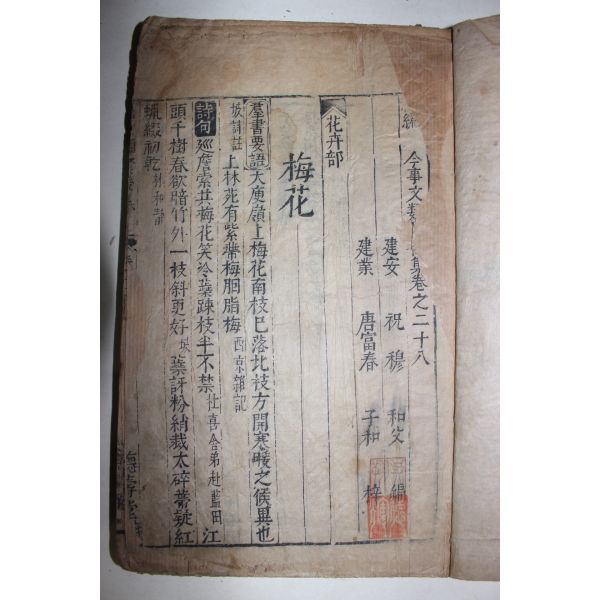 今事文類 集卷之二十八
建安 祝 穆 和父 編
建業 唐富春 子和 梓
花卉部
梅花
羣書要語 大庾嶺上梅花南枝已落北枝方開寒暖之候異也
坡詩註 上林苑有紫蔕梅胭脂梅 西京雜記
詩句 廵簷索共梅花笑冷蘂踈枝半不禁 杜喜舍弟赴藍田 江
頭千樹春欲暗竹外一枝斜更好 坡 蘂訝粉綃裁太碎蔕疑紅
蠟綴初乾 林和靖